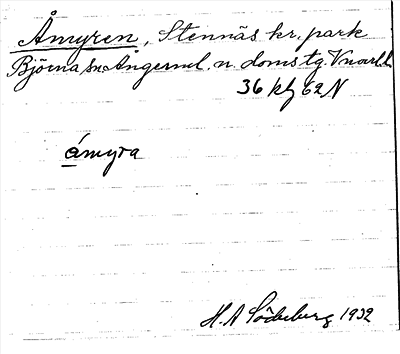 Åmyren, Stennäs kr. park
Björna sn Ångerml. n. doms.tg. Vnorrl. l.
36 kf 62 N
åmyra
H. A Söderberg 1932